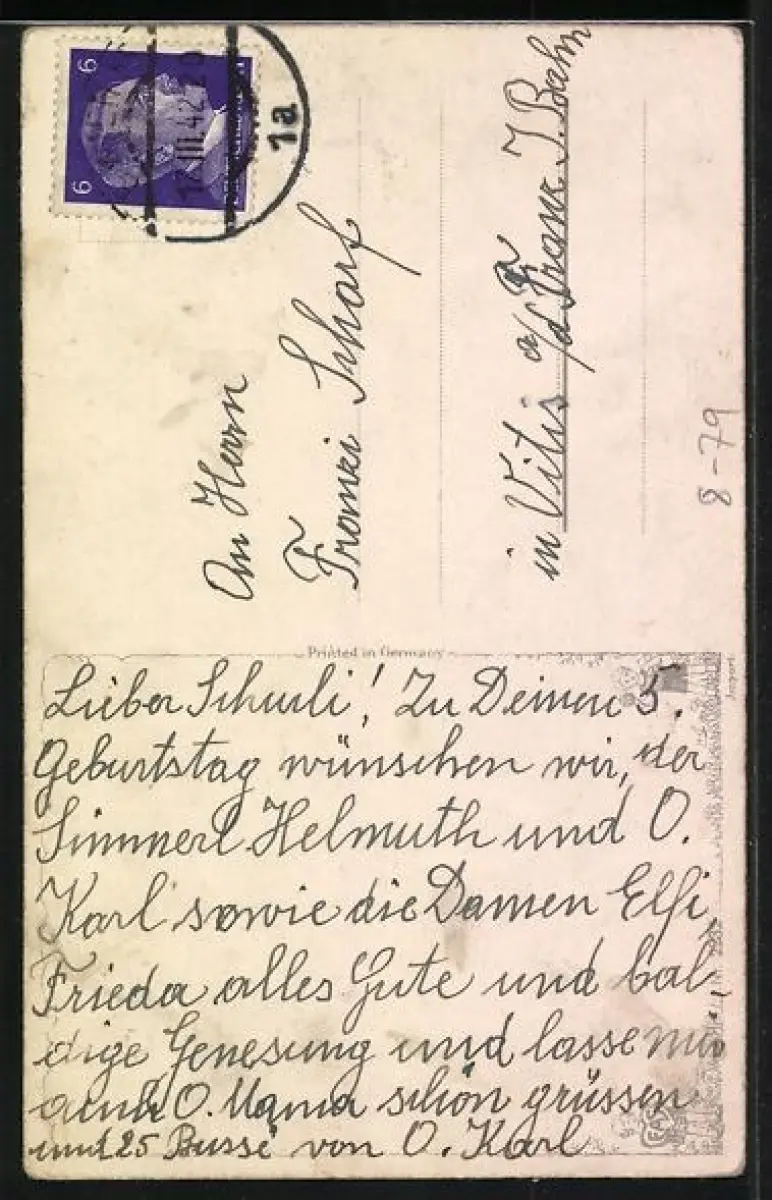 6
6
III.42
1a
An Herrn
Franzi Scharf
in Vitis a/d Franz J. Bahn
8-79
Printed in Germany
Import
Lieber Schurli! Zu Deinen 5.
Geburtstag wünschen wir, der
Simmerl Helmuth und O.
Karl sowie die Damen Elfi,
Frieda alles Gute und bal-
dige Genesung und lasse
auch O. Mama schön grüssen
und 25 Bussi von O. Karl
EAS